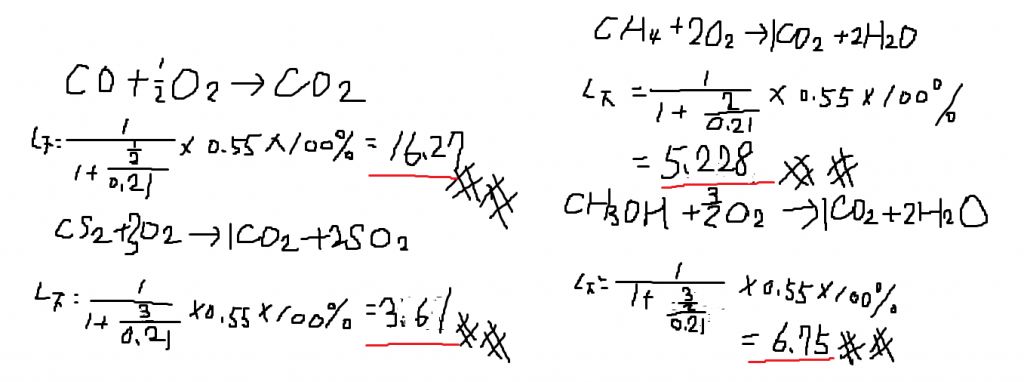 CO + 1/2 O2 → CO2
L下 = 1 / (1 + (1/2) / 0.21) × 0.55 × 100% = 16.27 ※※
CS2 + 3O2 → 1CO2 + 2SO2
L下 = 1 / (1 + 3 / 0.21) × 0.55 × 100% = 3.61 ※※
CH4 + 2O2 → 1CO2 + 2H2O
L下 = 1 / (1 + 2 / 0.21) × 0.55 × 100%
= 5.228 ※※
CH3OH + 3/2 O2 → 1CO2 + 2H2O
L下 = 1 / (1 + (3/2) / 0.21) × 0.55 × 100%
= 6.75 ※※